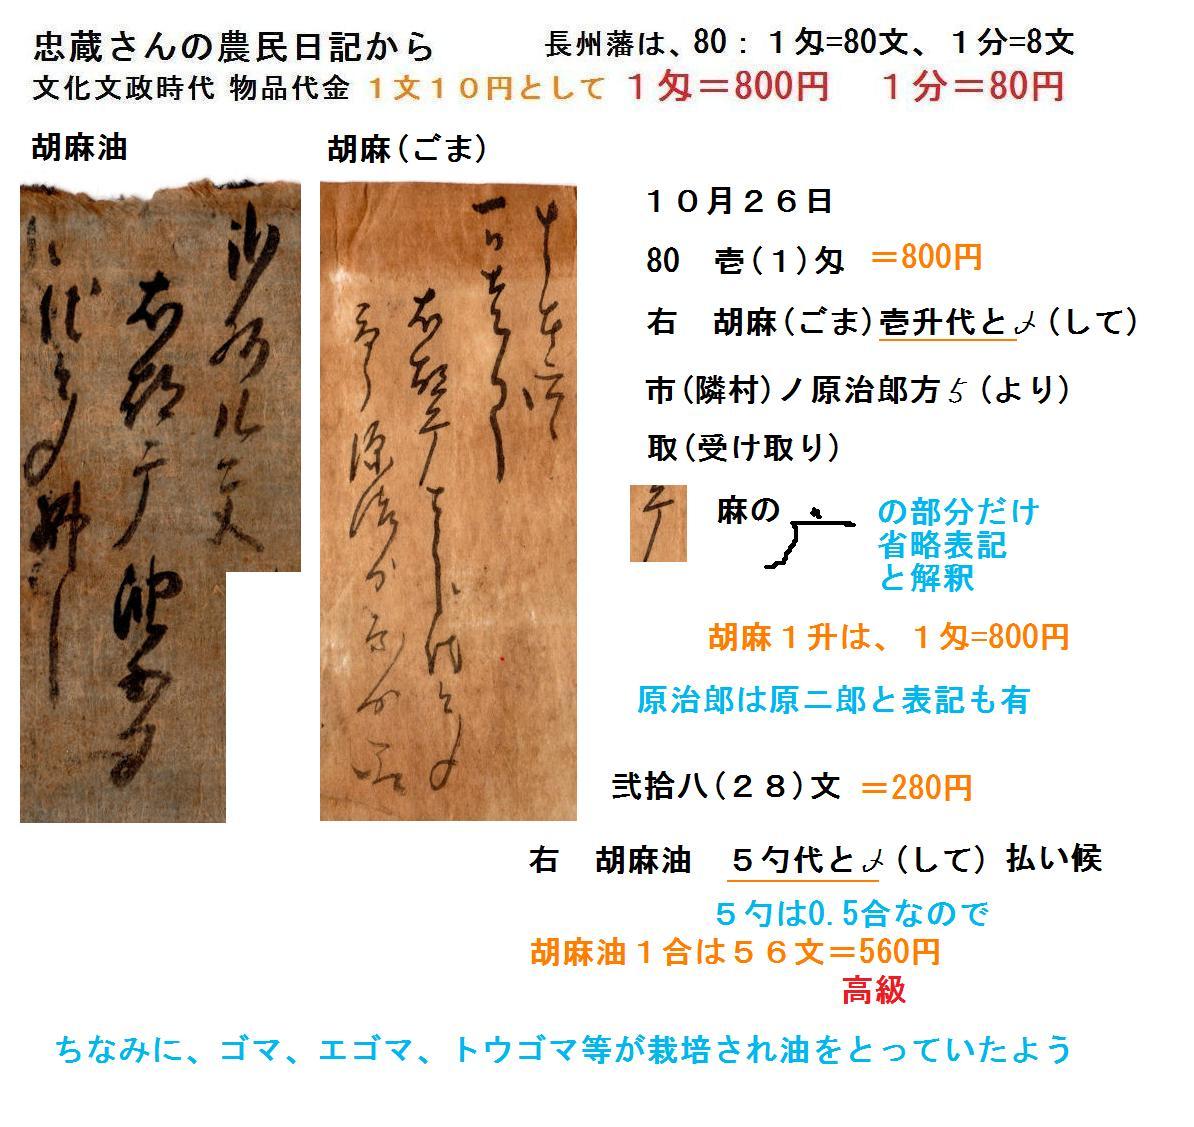 忠蔵さんの農民日記から
長州藩は、80：１匁=80文、１分=8文
文化文政時代 物品代金 １文１０円として １匁＝800円 １分＝80円
胡麻油
胡麻(ごま)
１０月２６日
80 壱(１)匁 ＝800円
右 胡麻(ごま)壱升代と〆(して)
市(隣村)ノ原治郎方ゟ(より)
取(受け取り)
麻の
の部分だけ
省略表記
と解釈
胡麻１升は、１匁=800円
原治郎は原二郎と表記も有
弐拾八(２８)文 ＝280円
右 胡麻油 ５勺代と〆(して) 払い候
５勺は0.5合なので
胡麻油１合は５６文＝560円
高級
ちなみに、ゴマ、エゴマ、トウゴマ等が栽培され油をとっていたよう